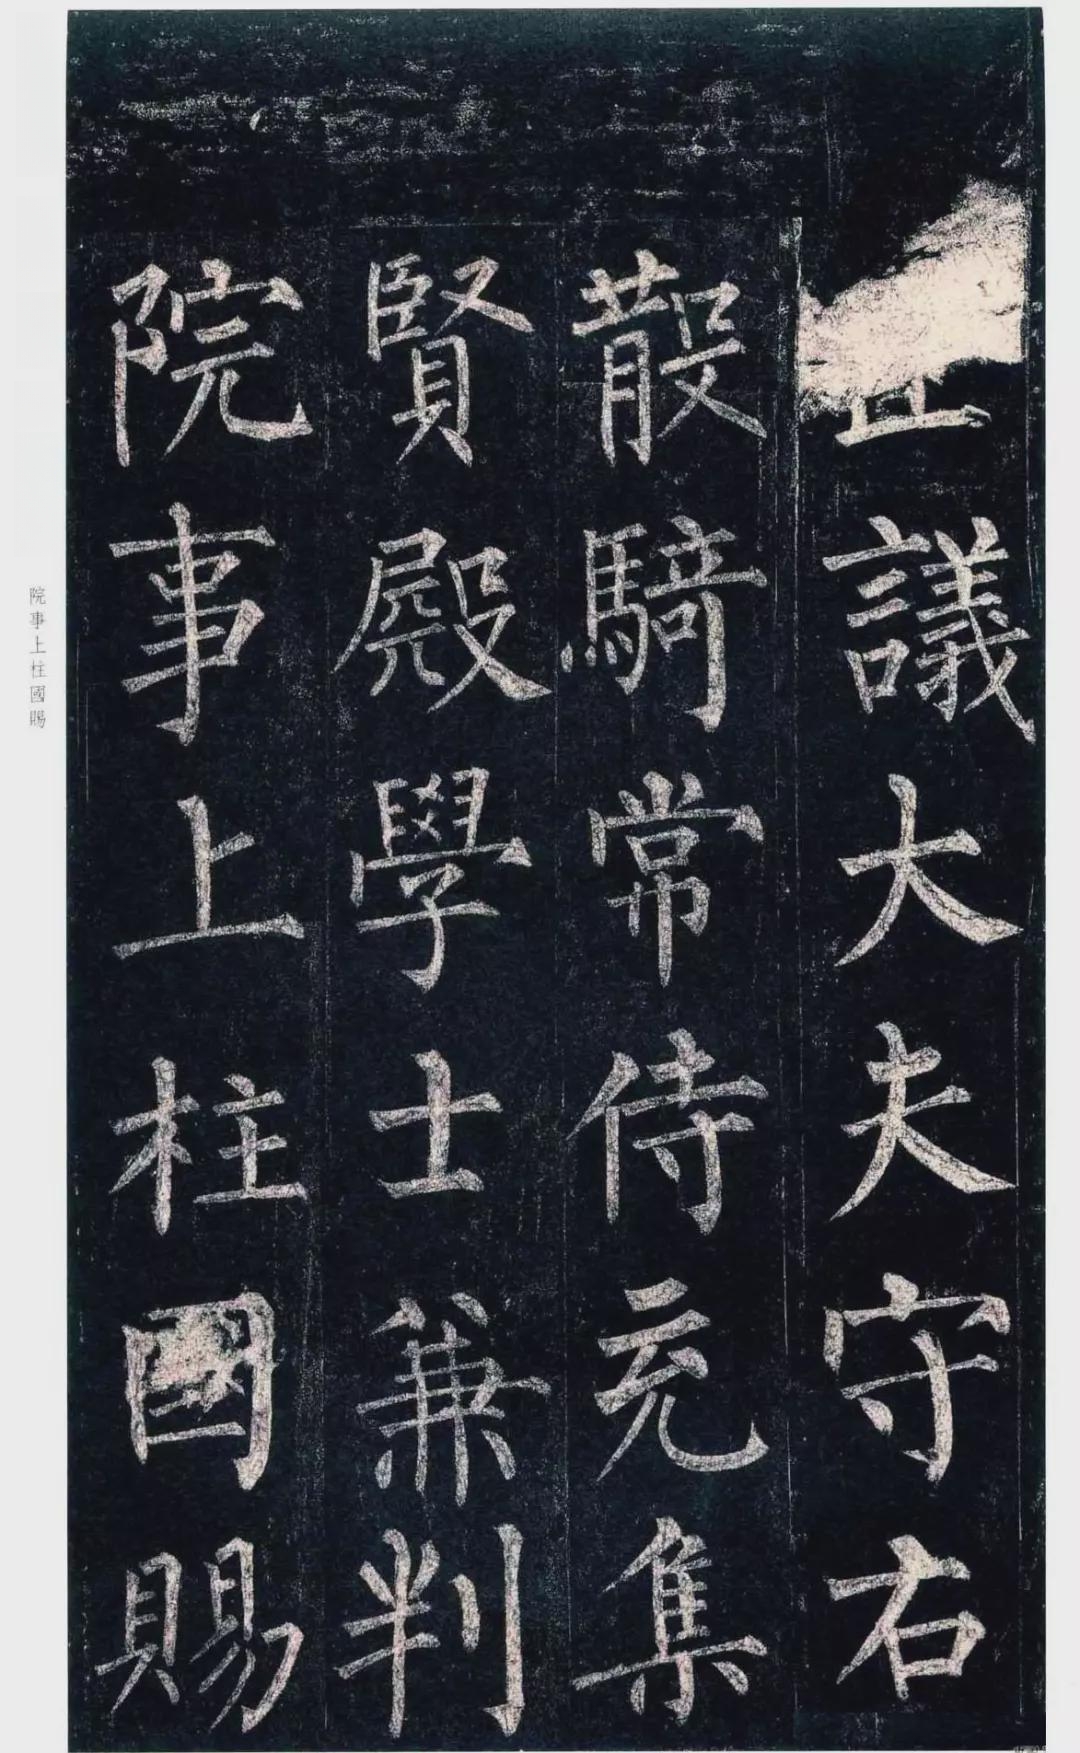 正議大夫守右
散騎常侍充集
賢殿學士兼判
院事上柱國賜
院事上柱國賜